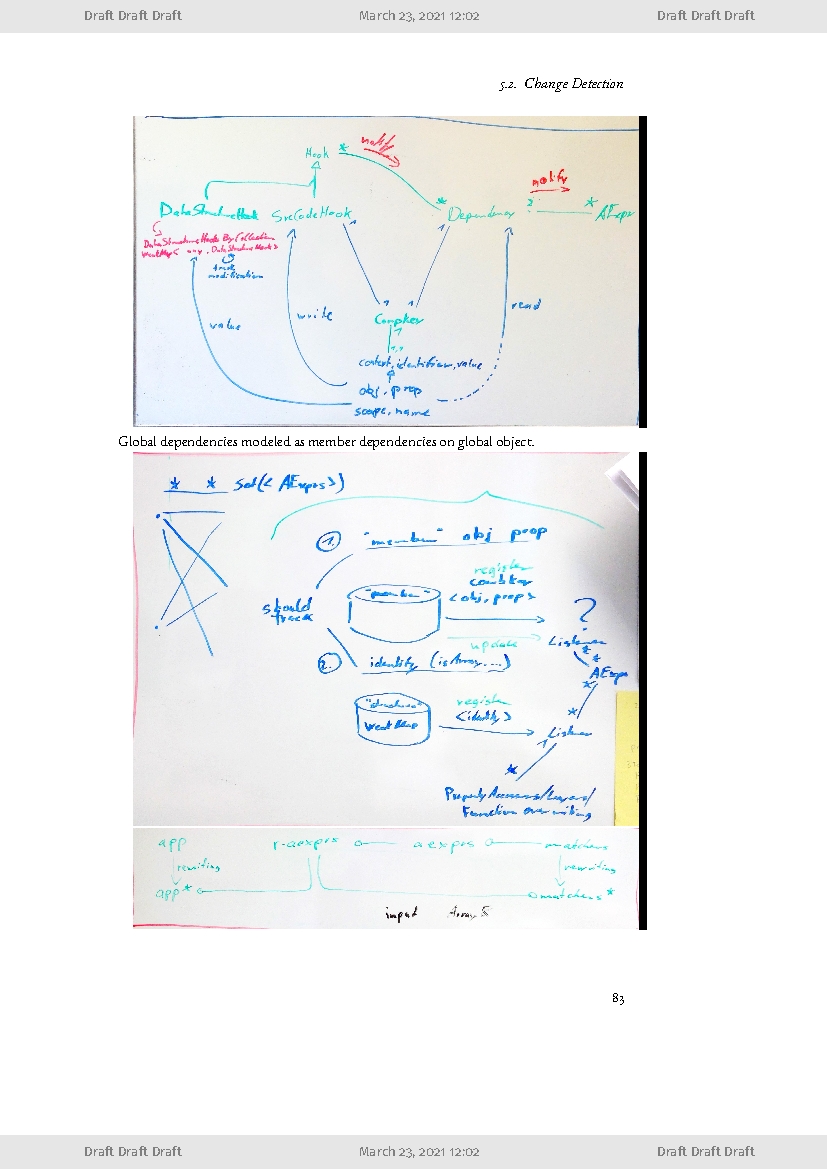 Draft Draft Draft March 23, 2021 12:02 Draft Draft Draft
5.2. Change Detection
Hook * notify
notify
DataStructureHook SrcCodeHook * Dependency * AExpr
DataStructureHook By Collection
WeakMap< any, DataStructureHook>
track
modification
value
write
CompKey
read
context, identifier, value
obj, prop
scope, name
Global dependencies modeled as member dependencies on global object.
* * Set(< AExprs>)
1. "member" obj prop
register
"member" CombKey
<obj, prop>
should
track
?
update
Listener
2. identify (isArray...)
* *
AExpr
*
"structure"
WeakMap
register
<identity>
*
Listener
*
Property Accessors/Layers/
Function overwriting
app r-aexprs aexprs matchers
rewriting rewriting
app* matchers*
input Array
83
Draft Draft Draft March 23, 2021 12:02 Draft Draft Draft